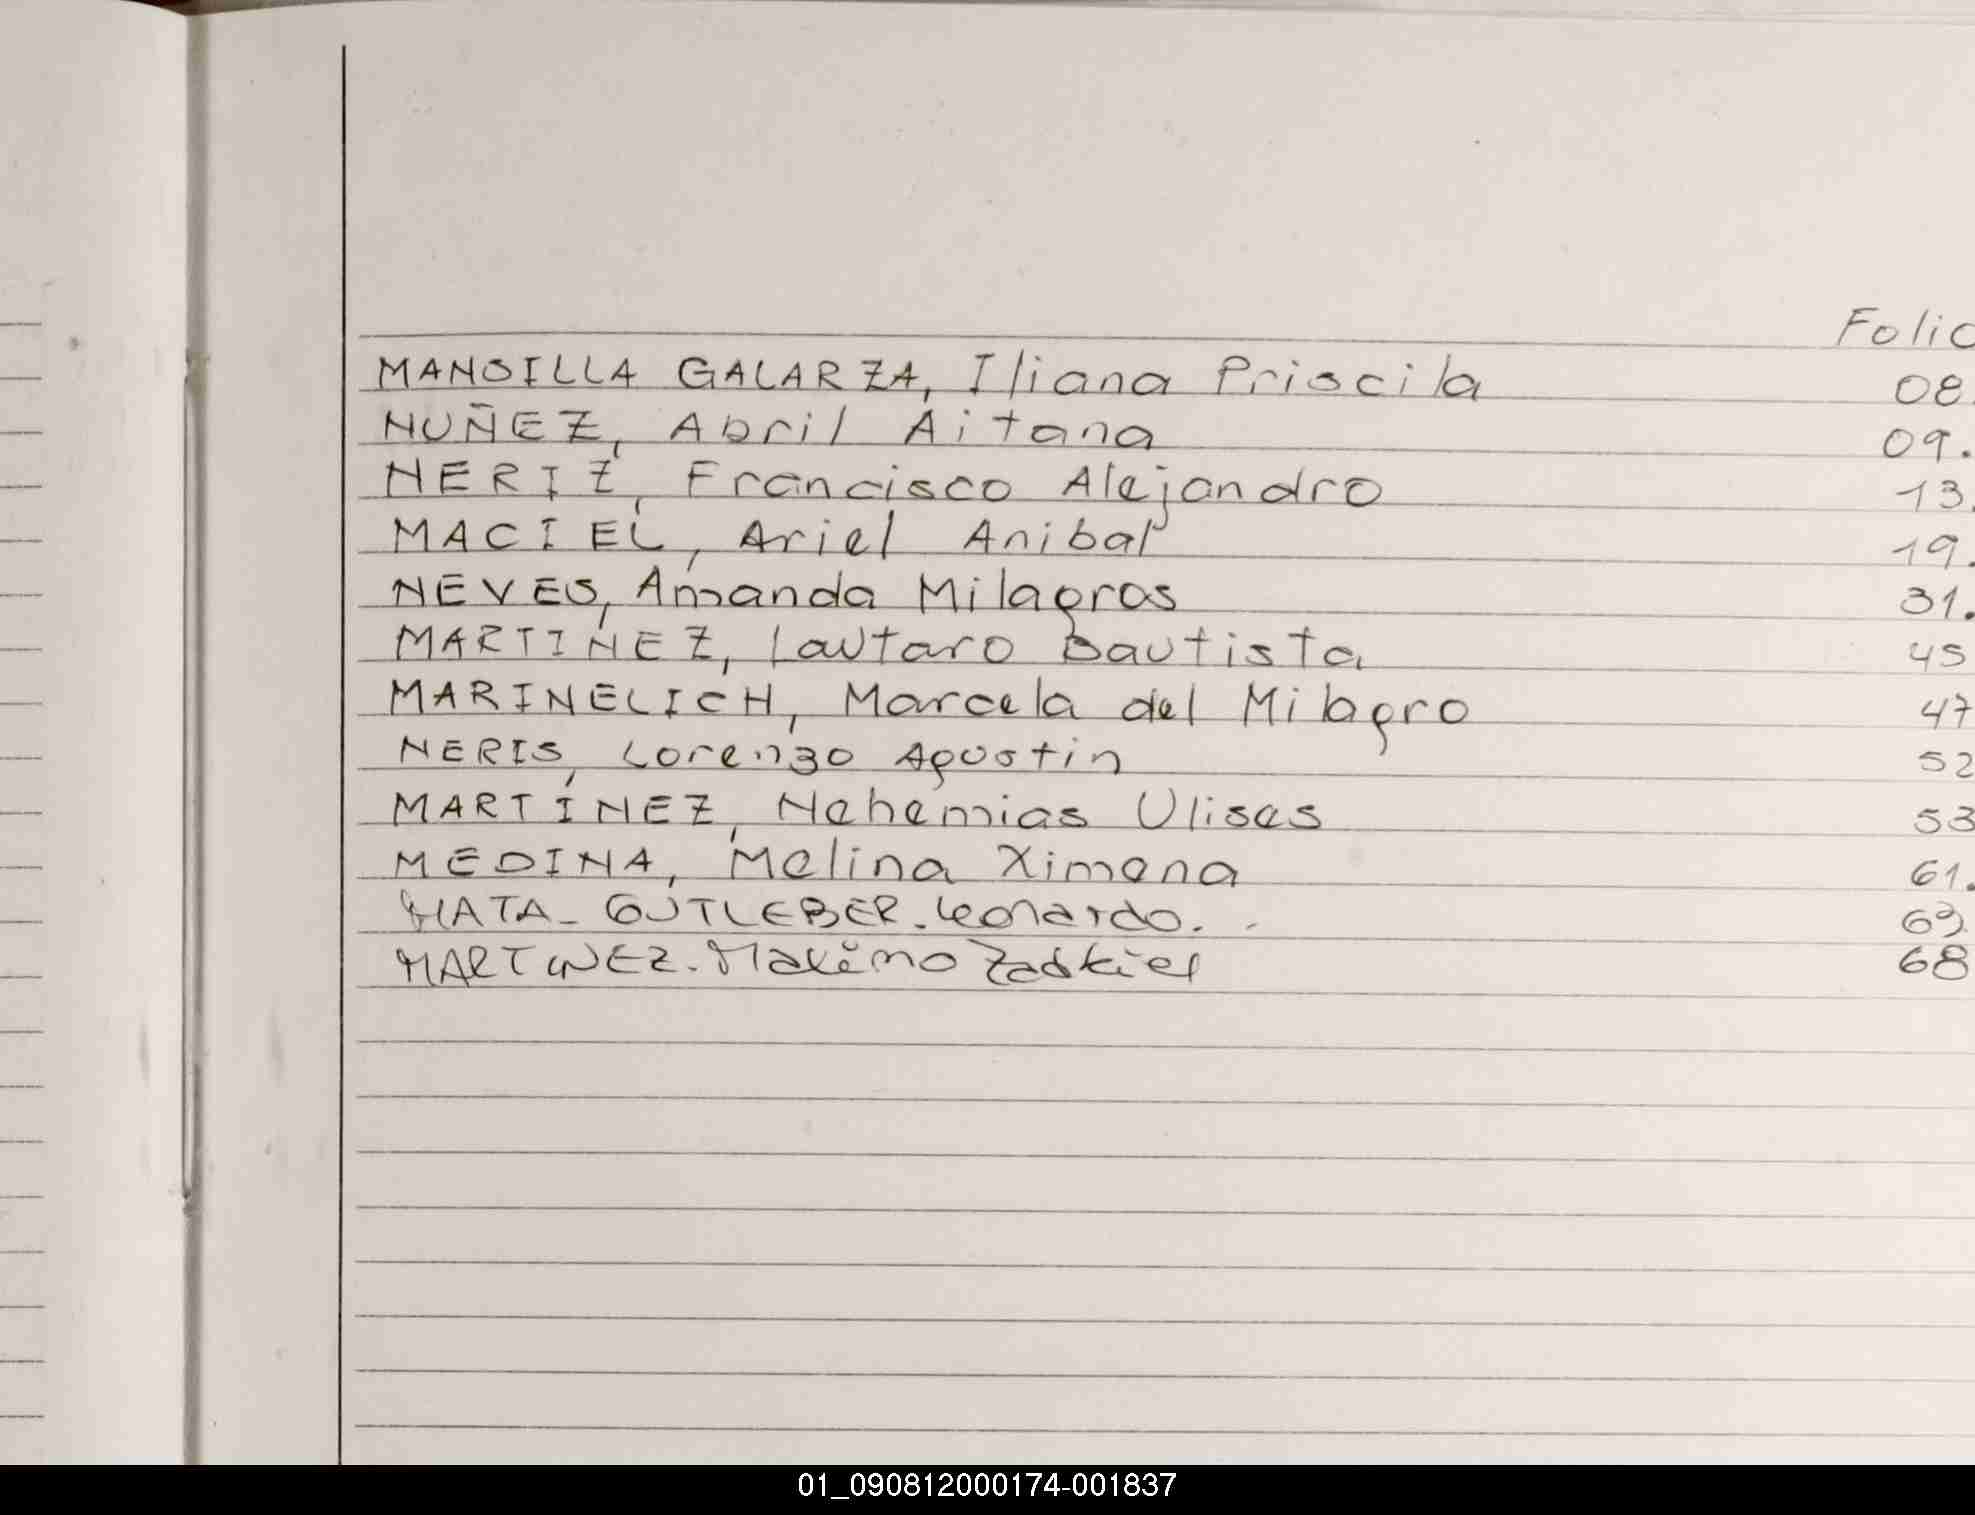 Folio
MANSILLA GALARZA, Iliana Priscila 08.
NUÑEZ, Abril Aitana 09.
NERIZ, Francisco Alejandro 13.
MACIEL, Ariel Anibal 19.
NEVES, Amanda Milagros 31.
MARTINEZ, Lautaro Bautista 45
MARINELICH, Marcela del Milagro 47
NERIS, Lorenzo Agustin 52
MARTÍNEZ, Nehemias Ulises 53
MEDINA, Melina Ximena 61.
MATA - GUTLEBER. Leonardo. 63.
MARTINEZ. Maximo Zadkiel 68
01_090812000174-001837